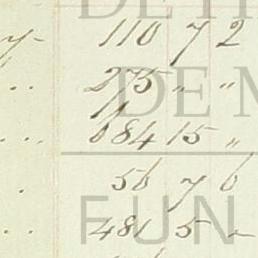 DETI
y- 110 7 2
.. 275 " "
DE M
.. 684 15 "
56 7 6
FUN
.. 481 5 -